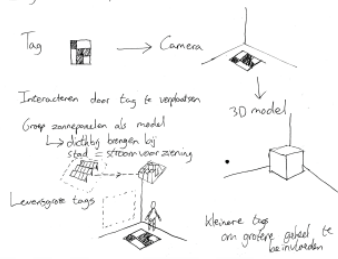 Tag
Camera
3D model
Interacteren door tag te verplaatsen
Groep zonnepanelen als model
dichtbij brengen bij
stad = stroomvoorziening
Levensgrote tags
kleinere tags
om grotere geheel te
beïnvloeden